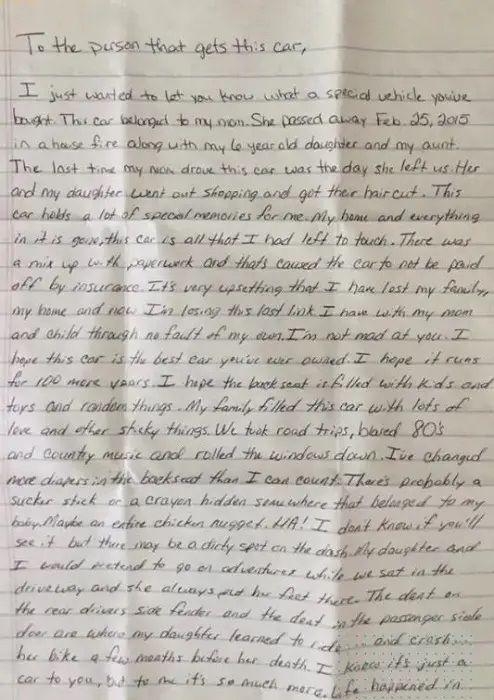 To the person that gets this car,
I just wanted to let you know what a special vehicle you've
bought. This car belonged to my mom. She passed away Feb. 25, 2015
in a house fire along with my 6 year old daughter and my aunt.
The last time my mom drove this car was the day she left us. Her
and my daughter went out shopping and got their haircut. This
car holds a lot of special memories for me. My home and everything
in it is gone, this car is all that I had left to touch. There was
a mix up with paperwork and that's caused the car to not be paid
off by insurance. It's very upsetting that I have lost my family,
my home and now I'm losing this last link I have with my mom
and child through no fault of my own. I'm not mad at you. I
hope this car is the best car you've ever owned. I hope it runs
for 100 more years. I hope the back seat is filled with kids and
toys and random things. My family filled this car with lots of
love and other sticky things. We took road trips, blared 80's
and country music and rolled the windows down. I've changed
more diapers in the backseat than I can count. There's probably a
sucker stick or a crayon hidden somewhere that belonged to my
baby. Maybe an entire chicken nugget. HA! I don't know if you'll
see it but there may be a dirty spot on the dash. My daughter and
I would pretend to go on adventures while we sat in the
driveway and she always put her feet there. The dent on
the rear drivers side fender and the dent in the passenger side
door are where my daughter learned to ride and crash
her bike a few months before her death. I know it's just a
car to you, but to me it's so much more. Life happened in